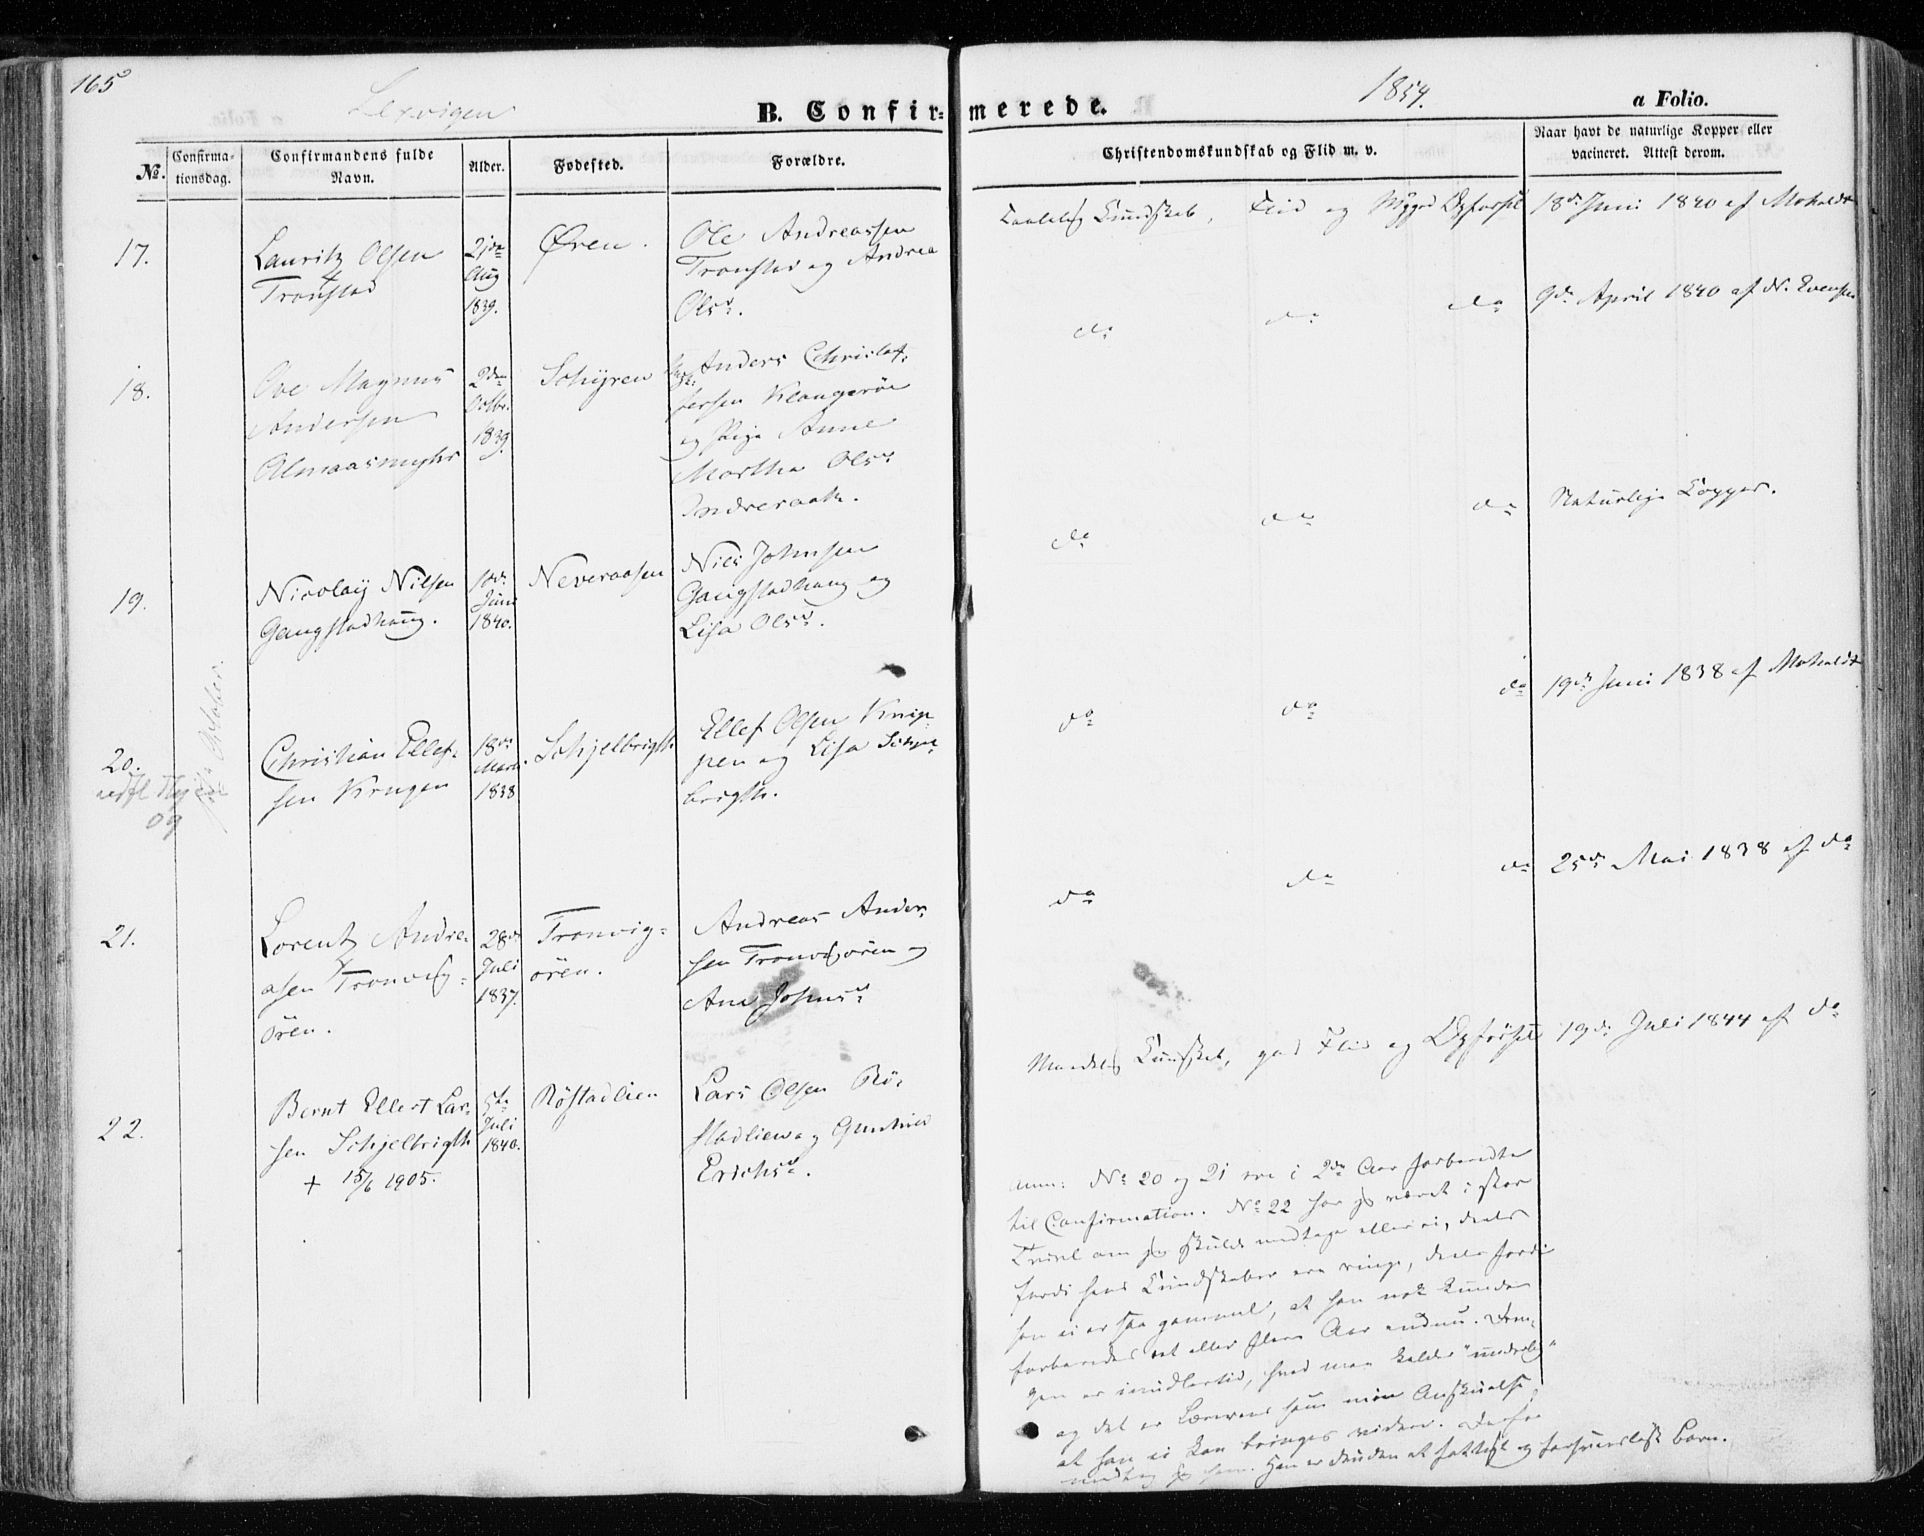 165
Lexvigen
B. Confirmerede.
1854.
a Folio.
No.
Confirma-
tionsdag.
Confirmandens fulde
Navn.
Alder.
Fødested.
Forældre.
Christendomskundskab og Flid m. v.
Naar havt de naturlige Kopper eller
vaccineret. Attest derom.
17.
Lauritz Olsen
Tronstad
21de
Aug
1839.
Øren.
Ole Andreassen
Tronstad og Andrea
Olsd.
Kundskab, Flid og
18de Juni 1840 af Moholdt
18.
Ove Magnus
Andersen
Almaas
2den
Octbr.
1839.
Schjren
Anders Christof-
fersen Klangerøe
og Pige Anne
Martha Olsd
Indreraak.
do do do
9de April 1840 af N. Evensen
19.
Nicolaij Nilsen
Gangstadhaug.
10de
Juni
1840.
Neveraasen
Nils Johnsen
Gangstadhaug og
Lisa Olsd.
do do do
Naturlige Kopper.
October
20.
09
Christian Ellef-
sen Krugen
18de
Marts
1838
Schjelbrigth.
Ellef Olsen Knip-
pen og Lisa Schjel-
brigth.
do do do
19de Juni 1838 af Moholdt
21.
Lorentz Andre-
asen Tronvig-
ören.
28de
Juli
1837.
Tronvig-
ören.
Andreas Ander-
sen Tronvigören og
Ane Johnsd
do do do
25de Mai 1838 af do
22.
Bernt Ellert Lar-
sen Schjelbrigth
+ 15/6 1905.
5te
Juli
1840.
Röstadlien
Lars Olsen Rö-
stadlien og Gunhild
Erichsd.
Maadelig Kundskab, god Flid og Opførsel
19de Juli 1844 af do
Anm: No 20 og 21 ere i 2det Aar forberedte
til Confirmation. No 22 har jeg været i stor
Tvivl om jeg skulde modtage eller ei, deels
fordi hans Kundskaber ere ringe, deels fordi
han ei er saa gammel, at han nok kunde
forberedes et eller flere Aar endnu. Dren-
gen er imidlertid, hvad man kalder "underlig"
og det er Lærerens som min Anskuelse,
at han ei kan bringes videre. Derfor
modtog jeg ham. Han er desuden et fattigt og forsvarsløst Barn.